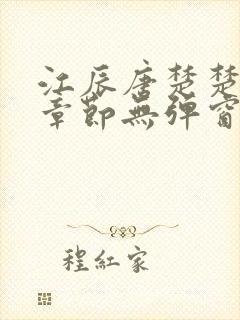 江辰唐楚楚
章節無彈窗
程紅家